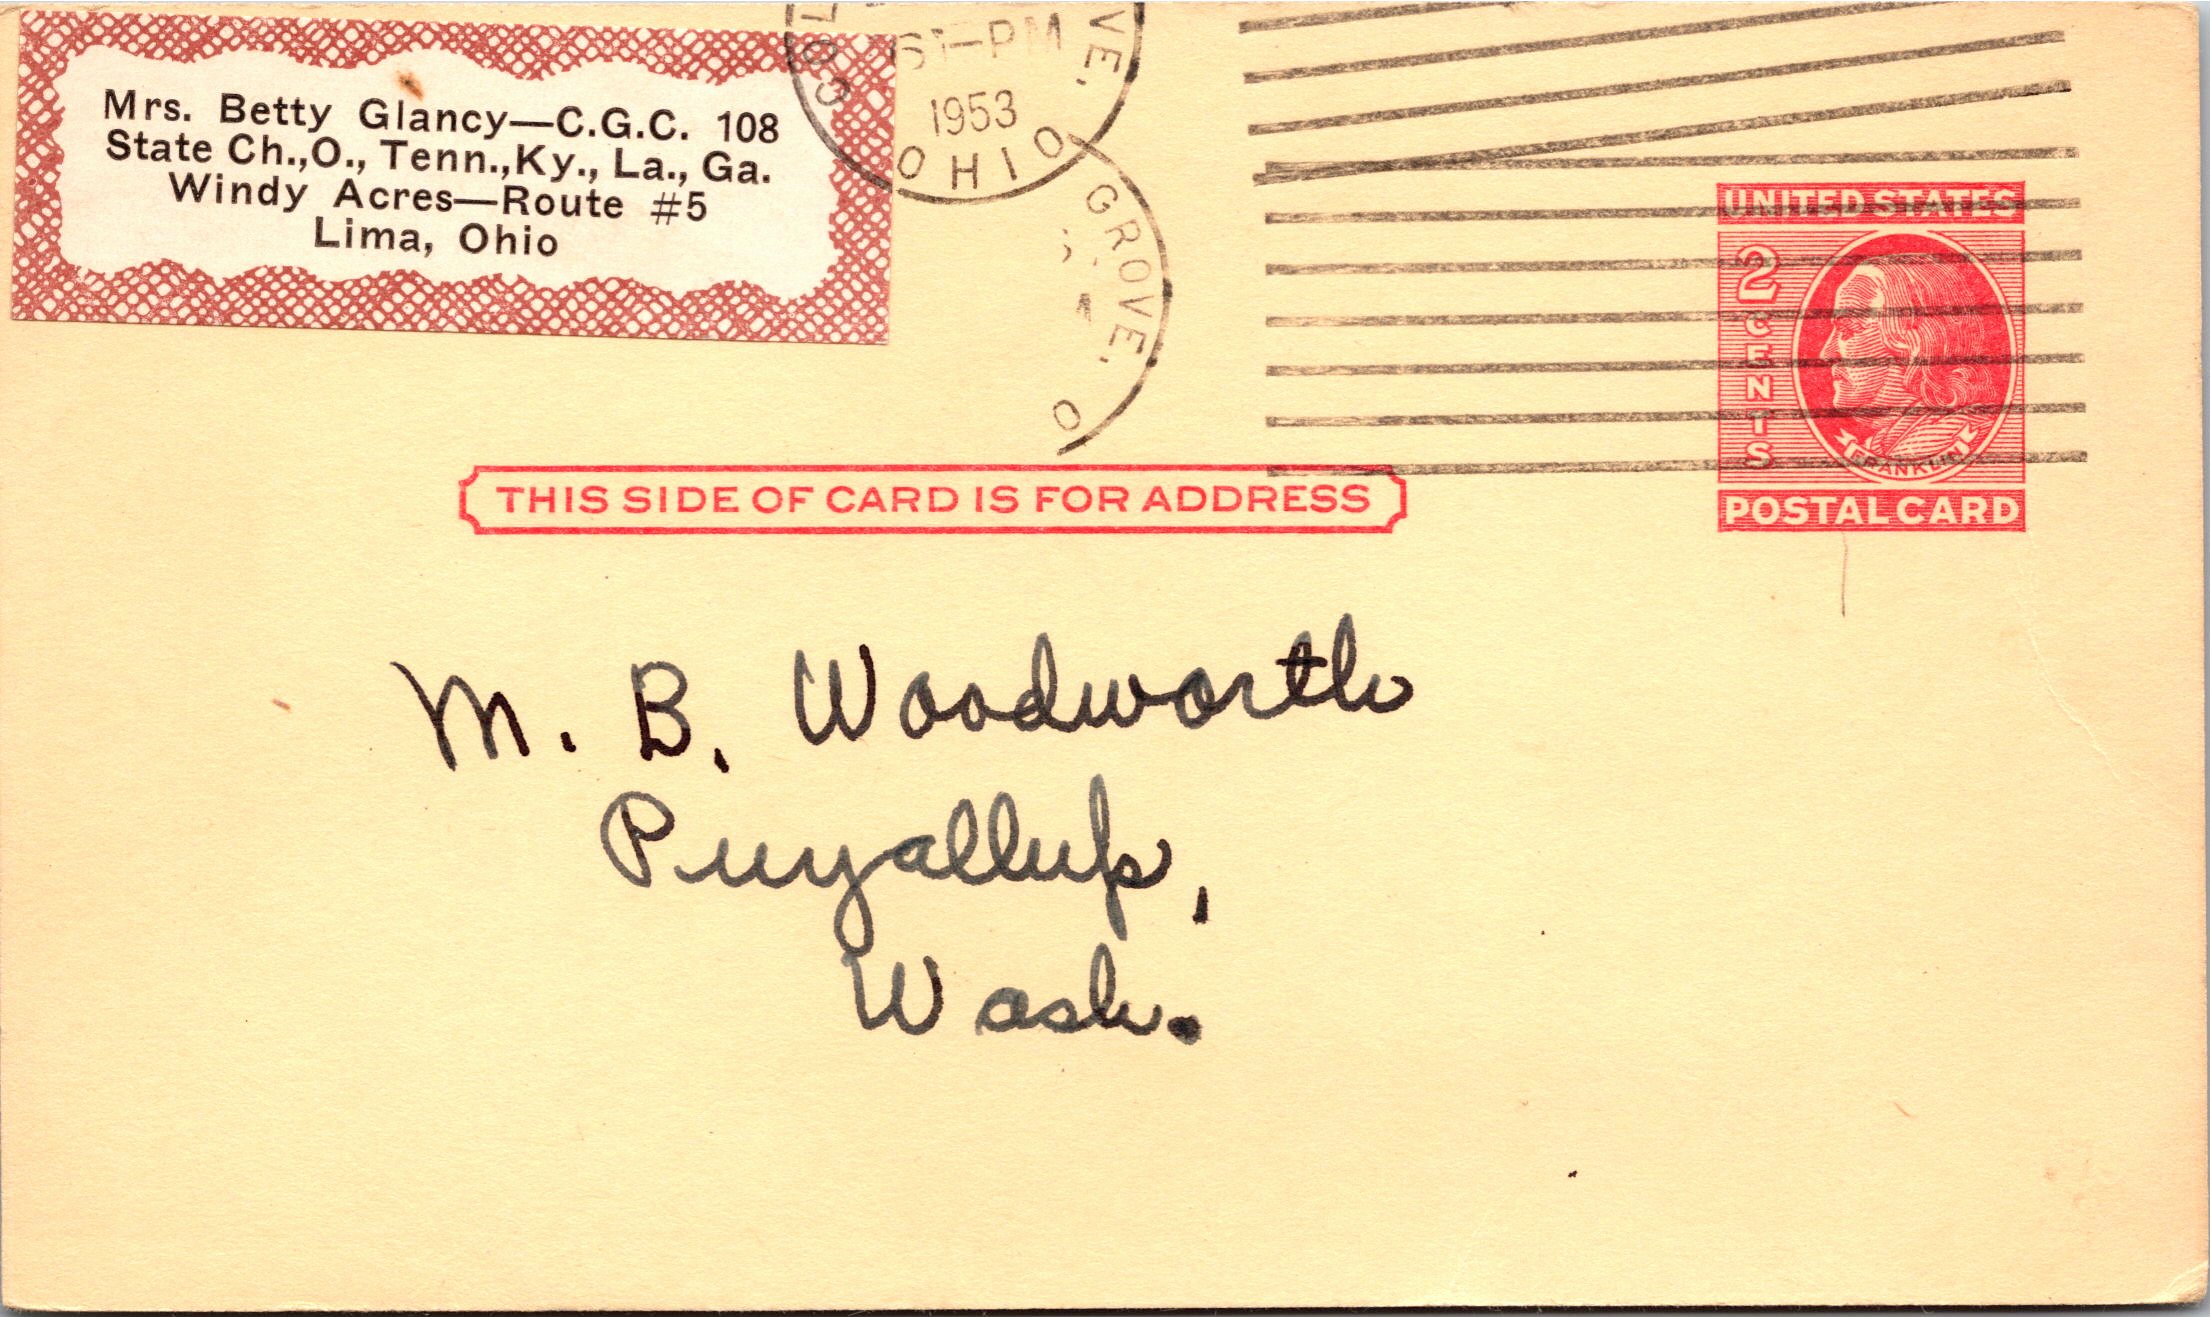 Mrs. Betty Glancy—C.G.C. 108
State Ch.,O., Tenn.,Ky., La., Ga.
Windy Acres—Route #5
Lima, Ohio
PM
1953
OHIO
GROVE, O
UNITED STATES
2 CENTS
FRANKLIN
POSTAL CARD
THIS SIDE OF CARD IS FOR ADDRESS
M. B. Woodworth
Puyallup,
Wash.